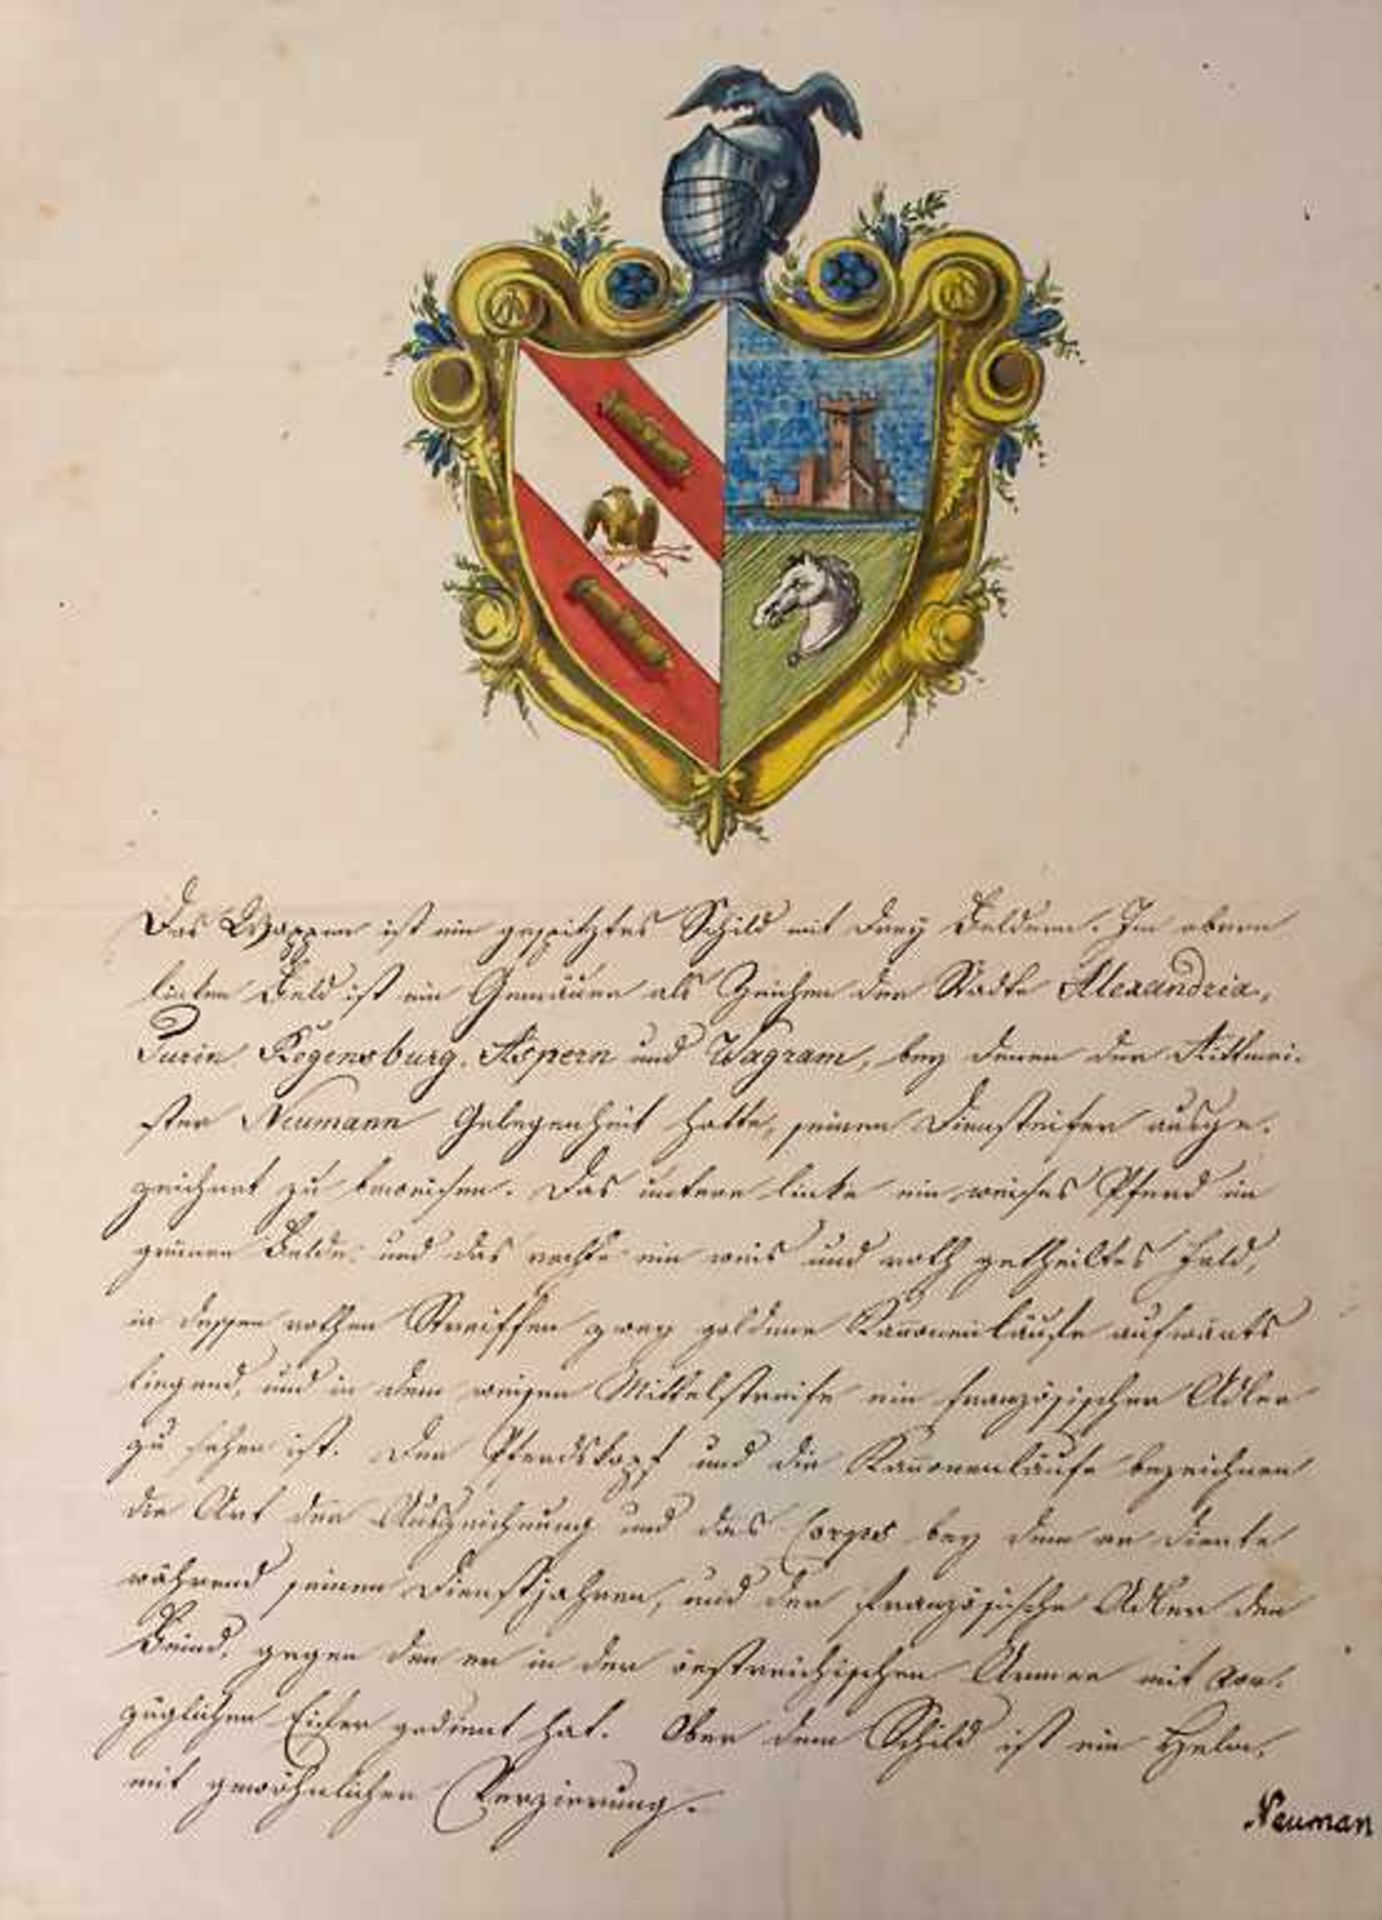 Das Wappen ist ein gespitztes Schild mit drey Feldern. Im obern
linken Feld ist ein Gemäuer als Zeichen der Städte Alexandria,
Turin, Regensburg, Aspern und Wagram, bey denen der Rittmei-
ster Neumann Gelegenheit hatte, seinen Diensteifer ausge-
zeichnet zu beweisen. Das untere linke ein weises Pferd im
grünen Felde: und das rechte ein weis und roth getheiltes Feld,
in dessen rothen Streiffen zwey goldene Kanonenläufe aufwärts
liegend, und in dem weisen Mittelstreife ein französischer Adler
zu sehen ist. Der Pferdskopf und die Kanonenläufe bezeichnen
die Art der Auszeichnung und das Corps bey dem er diente
während seinen Dienstjahren, und der französische Adler den
Feind, gegen den er in der östreichischen Armee mit vor-
züglichen Eifer gedient hat. Ober dem Schild ist ein Helm,
mit gewöhnlicher Verzierung.
Neuman